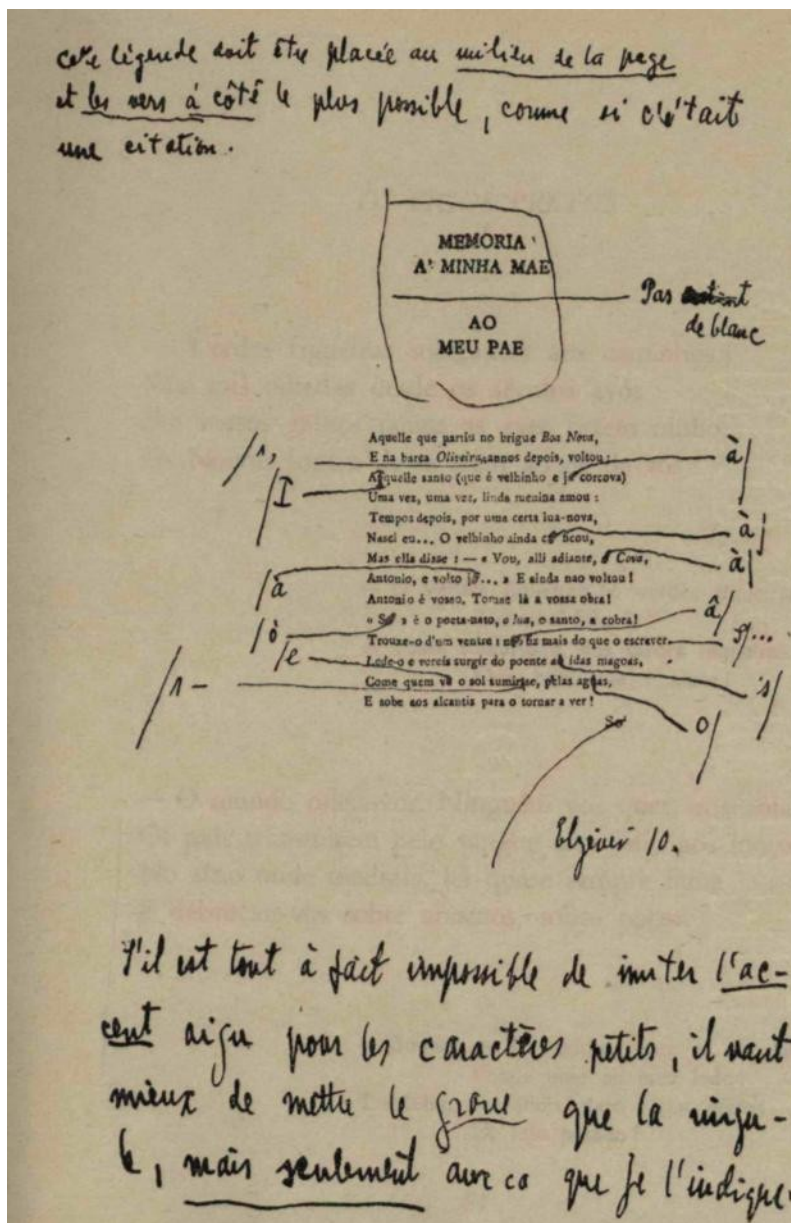 cette légende doit être placée au milieu de la page
et les vers à côté le plus possible, comme si c'était
une citation.
MEMORIA
A' MINHA MAE
Pas
de blanc
AO
MEU PAE
Aquelle que partiu no brigue Boa Nova,
E na barca Oliveira, annos depois, voltou:
Aquelle santo (que é velhinho e já corcova)
Uma vez, uma vez, linda menina amou:
Tempos depois, por uma certa lua-nova,
Nasci eu... O velhinho ainda cá ficou,
Mas ella disse: — « Vou, alli adiante, á Cova,
Antonio, e volto já... » E ainda nao voltou!
Antonio é vosso. Tomae lá a vossa obra!
« Só » é o poeta-nato, o lua, o santo, a cobra!
Trouxe-o d'um ventre: não fiz mais do que o escrever.
Lede-o e vereis surgir do poente as idas magoas,
Come quem vê o sol sumir-se, pelas aguas,
E sobe aos alcantis para o tornar a ver!
/1,
/I
à/
à/
à/
/à
/ò
â/
/e
/1-
's/
o/
So'
Elzévir 10.
S'il est tout à fait impossible de imiter l'ac-
cent aigu pour les caractères petits, il vaut
mieux de mettre le grave que la virgu-
le, mais seulement avec ce que je l'indique.